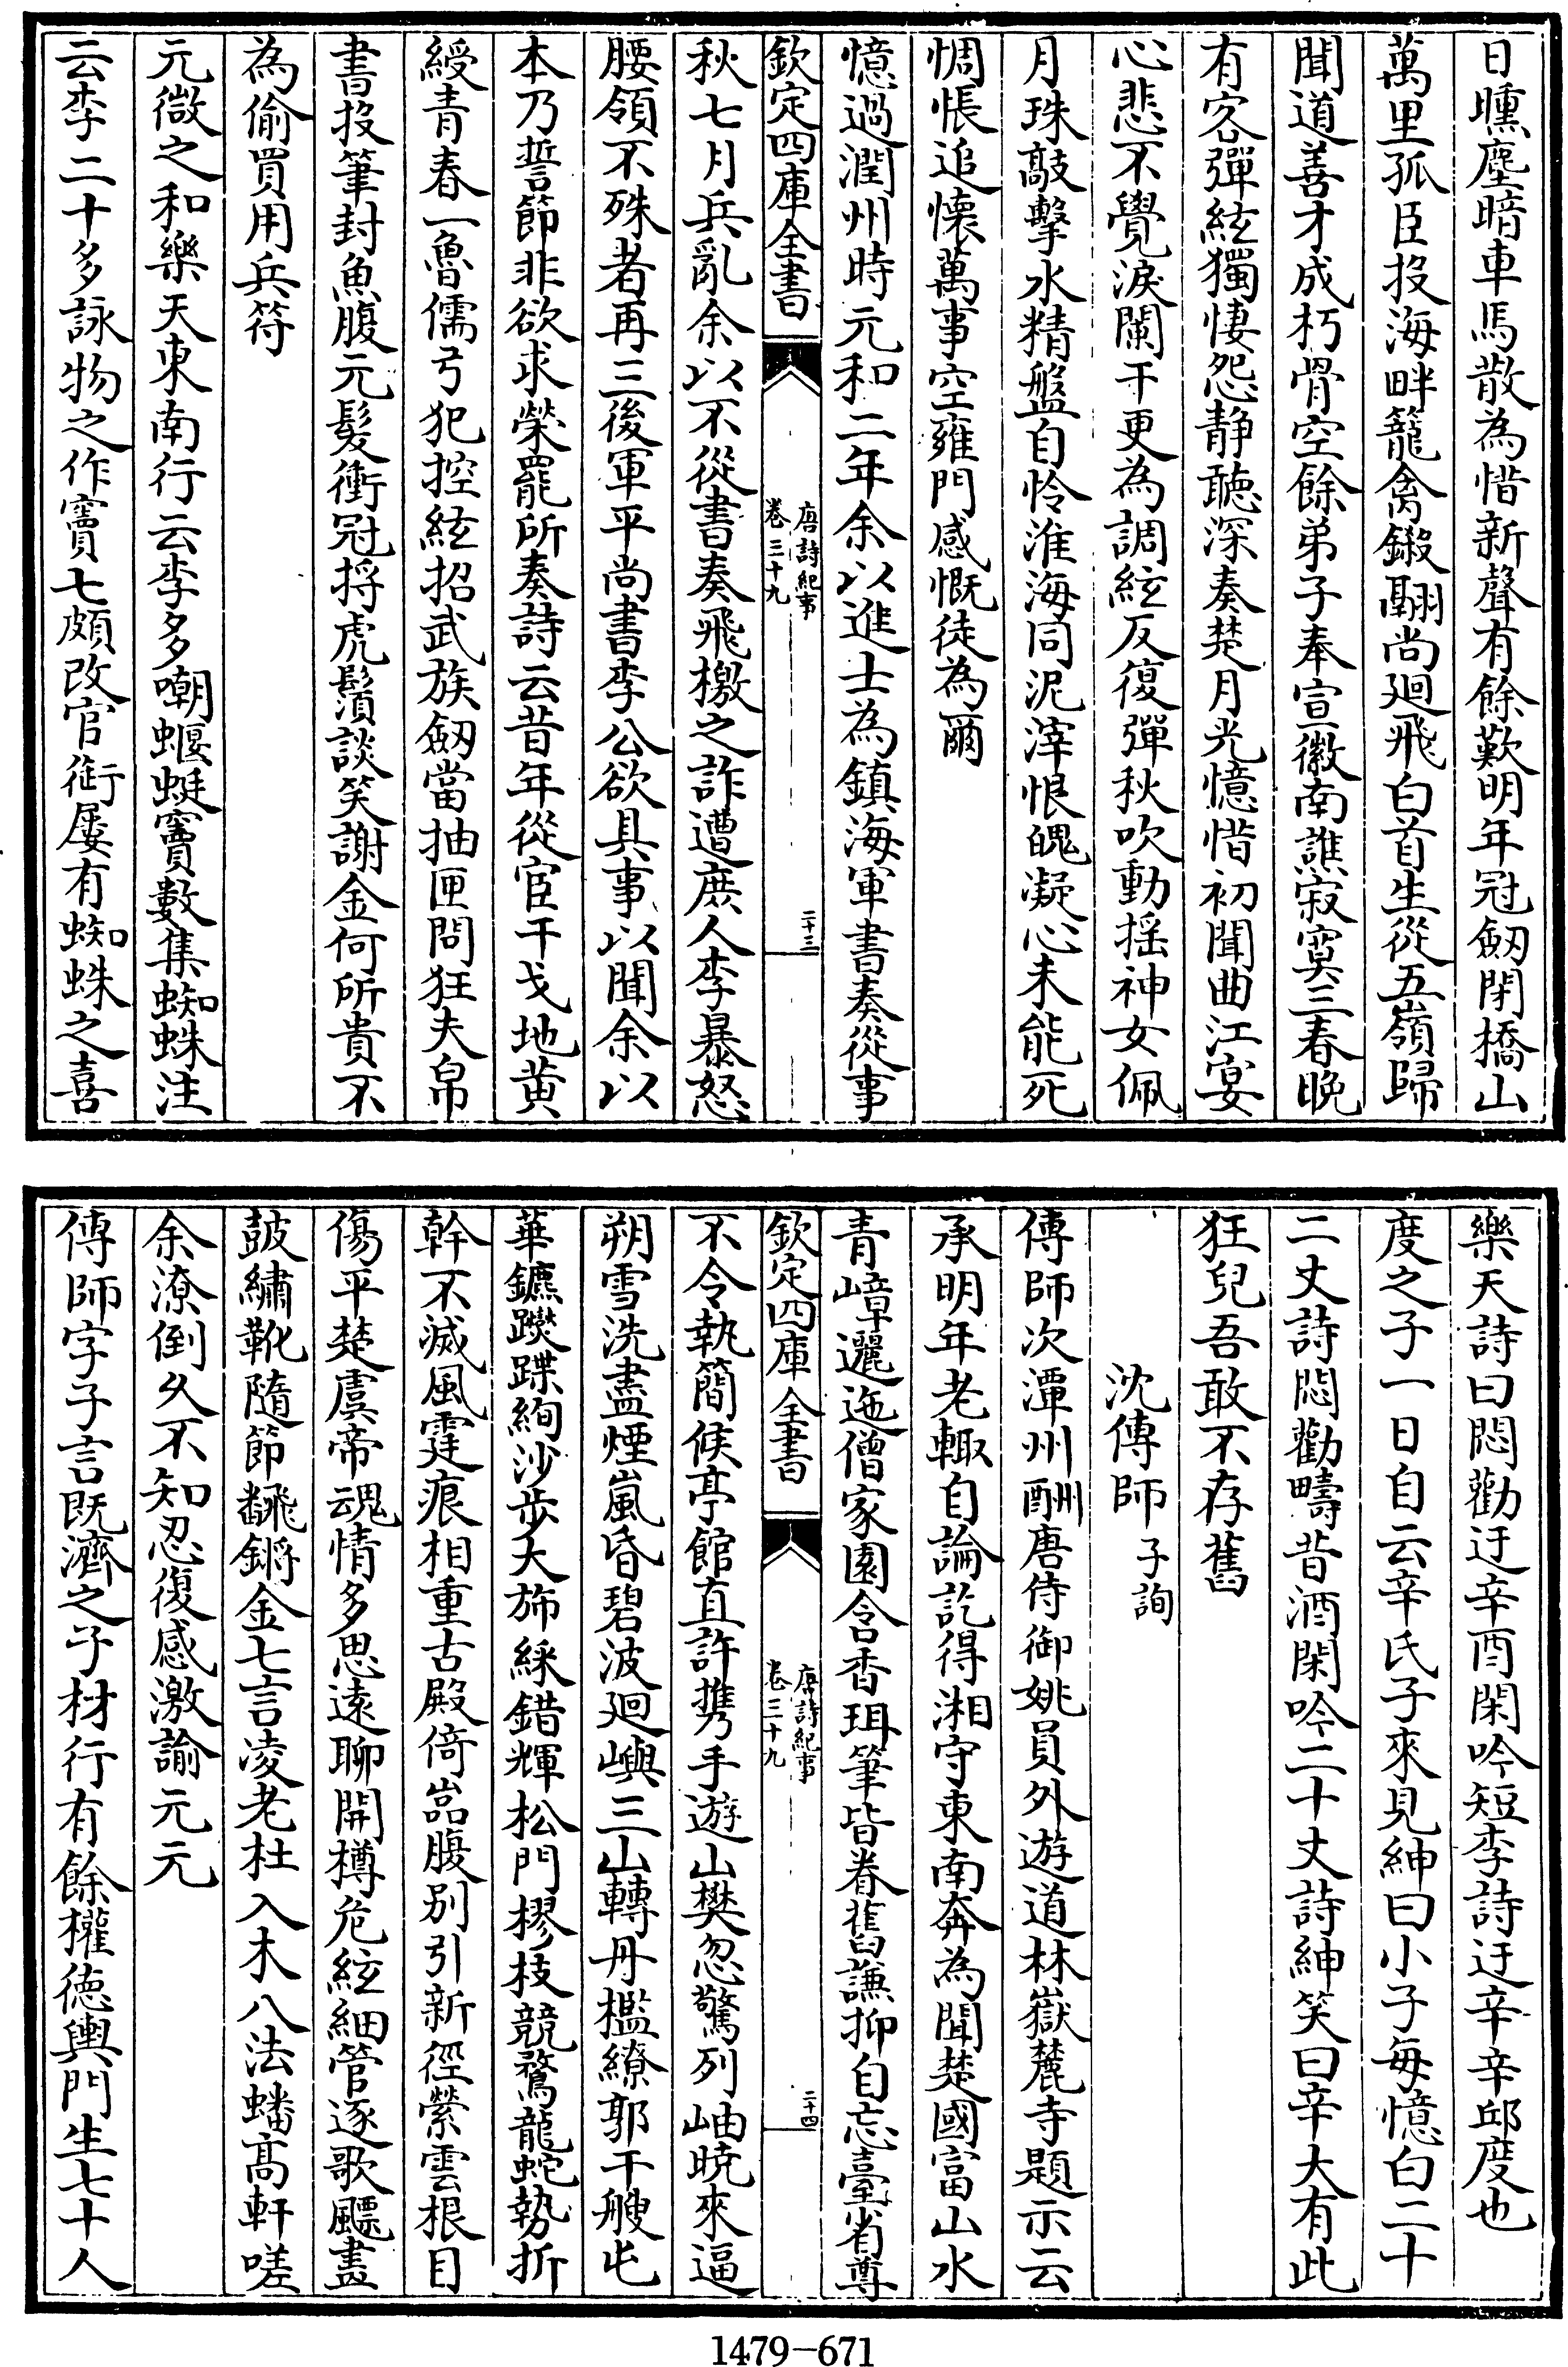 日曛塵暗車馬散為惜新聲有餘歎明年冠劔閉橋山
萬里孤臣投海畔籠禽鎩翮尚廻飛白首生從五嶺歸
聞道善才成朽骨空餘弟子奉宣徽南譙寂寞三春晚
有客彈絃獨悽怨静聽深奏楚月光憶惜初聞曲江宴
心悲不覺淚闌干更為調絃反復彈秋吹動摇神女佩
月珠敲擊水精盤自怜淮海同泥滓恨魄凝心未能死
惆悵追懷萬事空雍門感慨徒為爾
憶過潤州時元和二年余以進士為鎮海軍書奏從事
欽定四庫全書
唐詩紀事
卷三十九
二十三
秋七月兵亂余以不從書奏飛檄之詐遭庶人李暴怒
腰領不殊者再三後軍平尚書李公欲具事以聞余以
本乃誓節非欲求榮罷所奏詩云昔年從宦干戈地黄
綬青春一魯儒弓犯控絃招武族劔當抽匣問狂夫帛
書投筆封魚腹元髮衝冠捋虎鬚談笑謝金何所貴不
為偷買用兵符
元微之和樂天東南行云李多嘲蝘蜓竇數集蜘蛛注
云李二十多詠物之作竇七頗改官銜屢有蜘蛛之喜
樂天詩曰悶勸迂辛酉閑吟短李詩迂辛辛邱度也
度之子一日自云辛氏子來見紳曰小子每憶白二十
二丈詩悶勸疇昔酒閑吟二十丈詩紳笑曰辛大有此
狂兒吾敢不存舊
沈傳師 子詢
傳師次潭州酬唐侍御姚員外遊道林嶽麓寺題示云
承明年老輙自論訖得湘守東南奔為聞楚國富山水
青嶂邐迤僧家園含香珥筆皆眷舊謙抑自忘臺省尊
欽定四庫全書
唐詩紀事
卷三十九
二十四
不令執簡候亭館直許携手遊山樊忽驚列岫曉來逼
朔雪洗盡煙嵐昏碧波廻嶼三山轉丹檻繚郭千艘屯
華鑣躞蹀絢沙步大斾綵錯輝松門樛枝競騖龍蛇勢折
幹不滅風霆痕相重古殿倚嵓腹別引新徑縈雲根目
傷平楚虞帝魂情多思遠聊開樽危絃細管逐歌飃畫
鼓繡靴隨節翻鏘金七言凌老杜入木八法蟠髙軒嗟
余潦倒久不知忍復感激諭元元
傳師字子言既濟之子材行有餘權徳輿門生七十人
1479－671